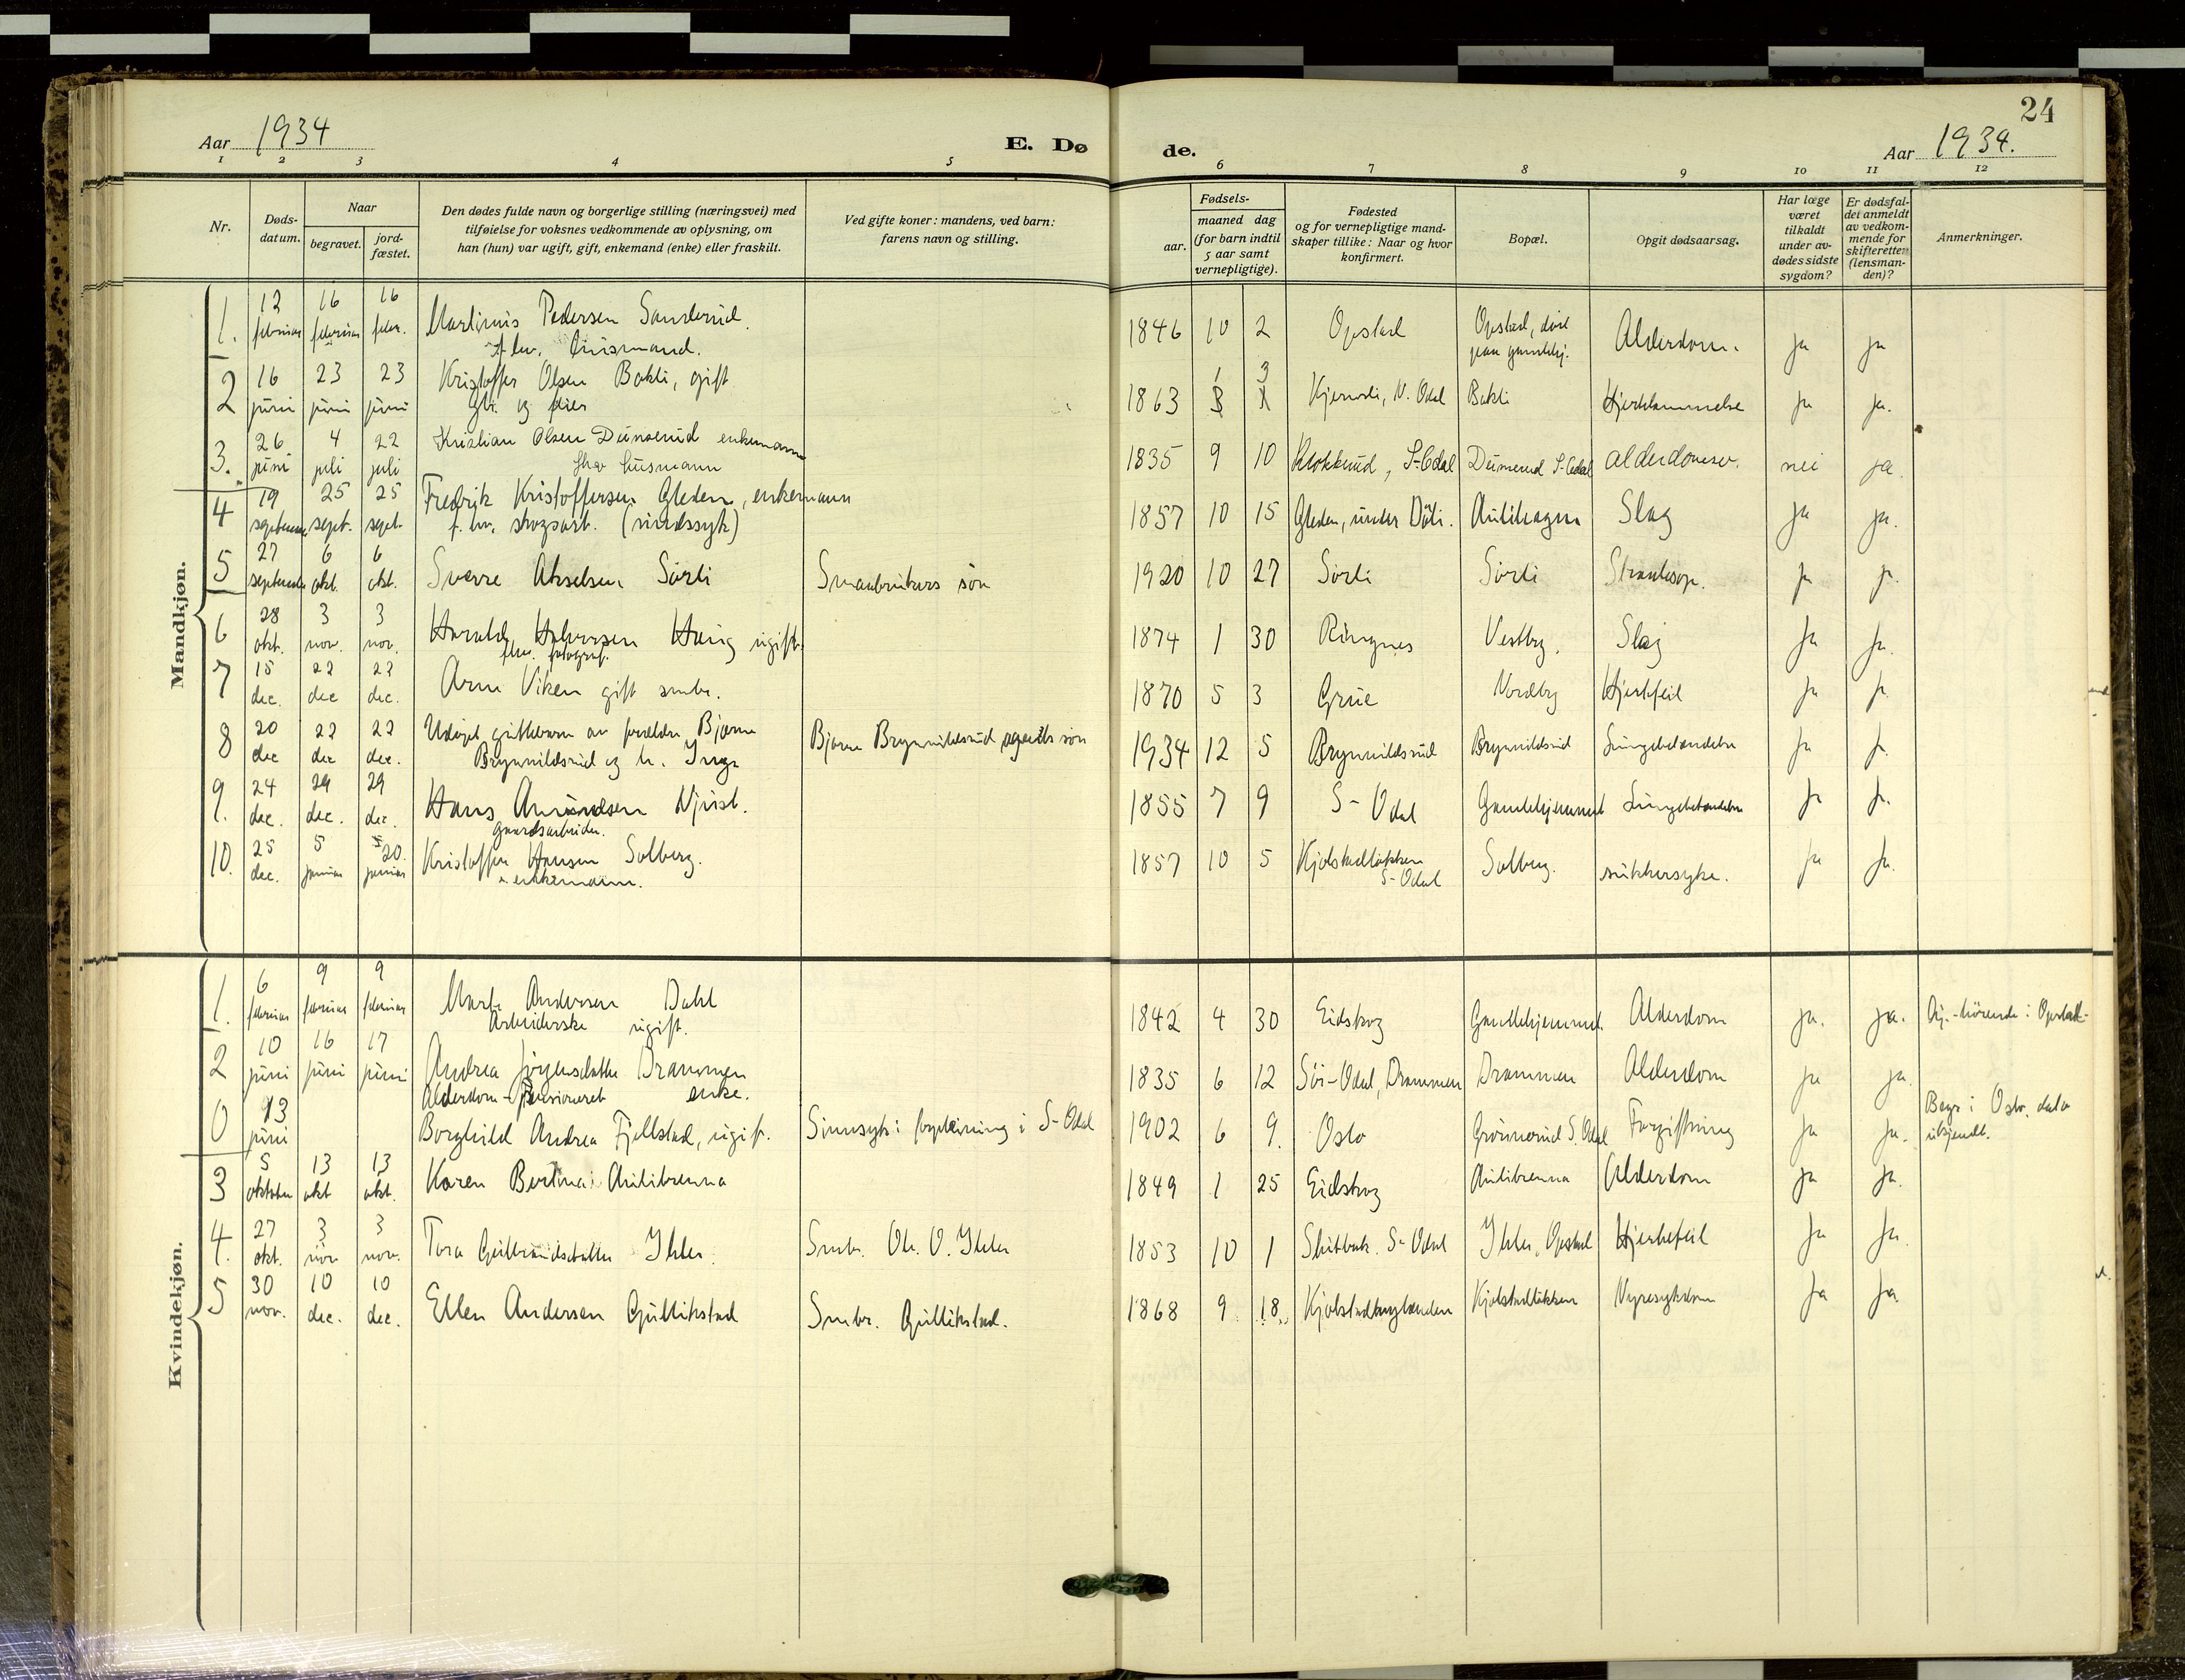 24
Aar 1934
E. Dø
de.
Aar 1934.
1 2 3 4 5 6 7 8 9 10 11 12
Nr.
Døds-datum.
Naar
begravet.
jord-fæstet.
Den dødes fulde navn og borgerlige stilling (næringsvei) med
tilføielse for voksnes vedkommende av oplysning, om
han (hun) var ugift, gift, enkemand (enke) eller fraskilt.
Ved gifte koner: mandens, ved barn:
farens navn og stilling.
Fødsels-
aar.
maaned dag
(for barn indtil
5 aar samt
vernepligtige).
Fødested
og for vernepligtige mand-
skaper tillike: Naar og hvor
konfirmert.
Bopæl.
Opgit dødsaarsag.
Har læge
været
tilkaldt
under av-
dødes sidste
sygdom?
Er dødsfal-
det anmeldt
av vedkom-
mende for
skifteretten
(lensman-
den)?
Anmerkninger.
Mandkjøn.
1. 12 februar 16 februar 16 febr. Martinus Pedersen Sanderud f. hv. husmand. 1846 10 2 Opstad Opstad, død paa gamlehj. Alderdom. ja ja
2 16 juni 23 juni 23 juni Kristoffer Olsen Bakli, gift 1863 1 3 Kjernsli, N. Odal Bakli Hjertelammelse ja ja.
3. 26 juni 4 juli 22 juli Kristian Olsen Dunserud enkemann fhv husmann 1835 9 10 Klokkerud, S-Odal Dunserud S-Odal alderdomssv. nei ja.
4 19 september 25 sept. 25 sept. Fredrik Kristoffersen Gleden, enkemann f. hv. skogsarb. (sindssyk) 1857 10 15 Gleden, under Döli. Aulihagen Slag ja ja.
5 27 september 6 okt. 6 okt. Sverre Akselsen Sörli Smaabrukers sön 1920 10 27 Sörli Sörli ja ja.
6 28 okt. 3 nov. 3 nov. Harald Halvorsen Haug ugift. fhv. fotograf. 1874 1 30 Ringnes Vestby. Slag ja ja.
7 15 dec. 22 dec 22 dec. Arne Viken gift smbr. 1870 5 3 Grue Nordby Hjertefeil ja ja.
8 20 dec 22 dec 22 dec. Udöpt guttebarn av foreldre Bjarne Brynnildsrud og h. Inga Bjarne Brynnildsrud agents sön 1934 12 5 Brynnildsrud Brynnildsrud Lungebetændelse ja ja.
9. 24 dec. 29 dec. 29 dec. Hans Amundsen Njust. gaardsarbeider. 1855 7 9 S-Odal Gamlehjemmet Lungebetændelse ja ja.
10. 25 dec. 5 januar 20. januar Kristoffer Hansen Solberg. enkemann. 1857 10 5 Kjolstadlökken S-Odal Solberg. sukkersyke. ja ja.
Kvindekjøn.
1. 6 februar 9 februar 9 februar Marte Andersen Dahl Arbeiderske ugift. 1842 4 30 Eidskog Gamlehjemmet. Alderdom ja. ja. hörende i Opstad.
2 10 juni 16 juni 17 juni Andrea Jörgensdatter Drammen Alderdom-Pensioneret enke. 1835 6 12 Sör-Odal, Drammen Drammen Alderdom ja ja.
0 13 juni Borghild Andrea Fjellstad, ugift. Sinnsyk i forpleining i S-Odal 1902 6 9. Oslo Grönnerud S. Odal Forgiftning ja ja. Begr i Oslo, dato ukjendt.
3 5 oktober 13 okt 13 okt. Karen Bertine Aulibrenna 1849 1 25 Eidskog Aulibrenna Alderdom ja ja.
4. 27 okt. 3 nov 3 nov. Tora Gulbrandsdatter Ihler. Smbr. Ole O. Ihler 1853 10 1 Slitbak. S-Odal Ihler, Opstad Hjertefeil ja ja.
5 30 nov. 10 dec. 10 dec. Ellen Andersen Gullikstad Smbr. Gullikstad. 1868 9 18. Kjolstadhuglenden Kjolstadlökken Nyresykdom ja ja.